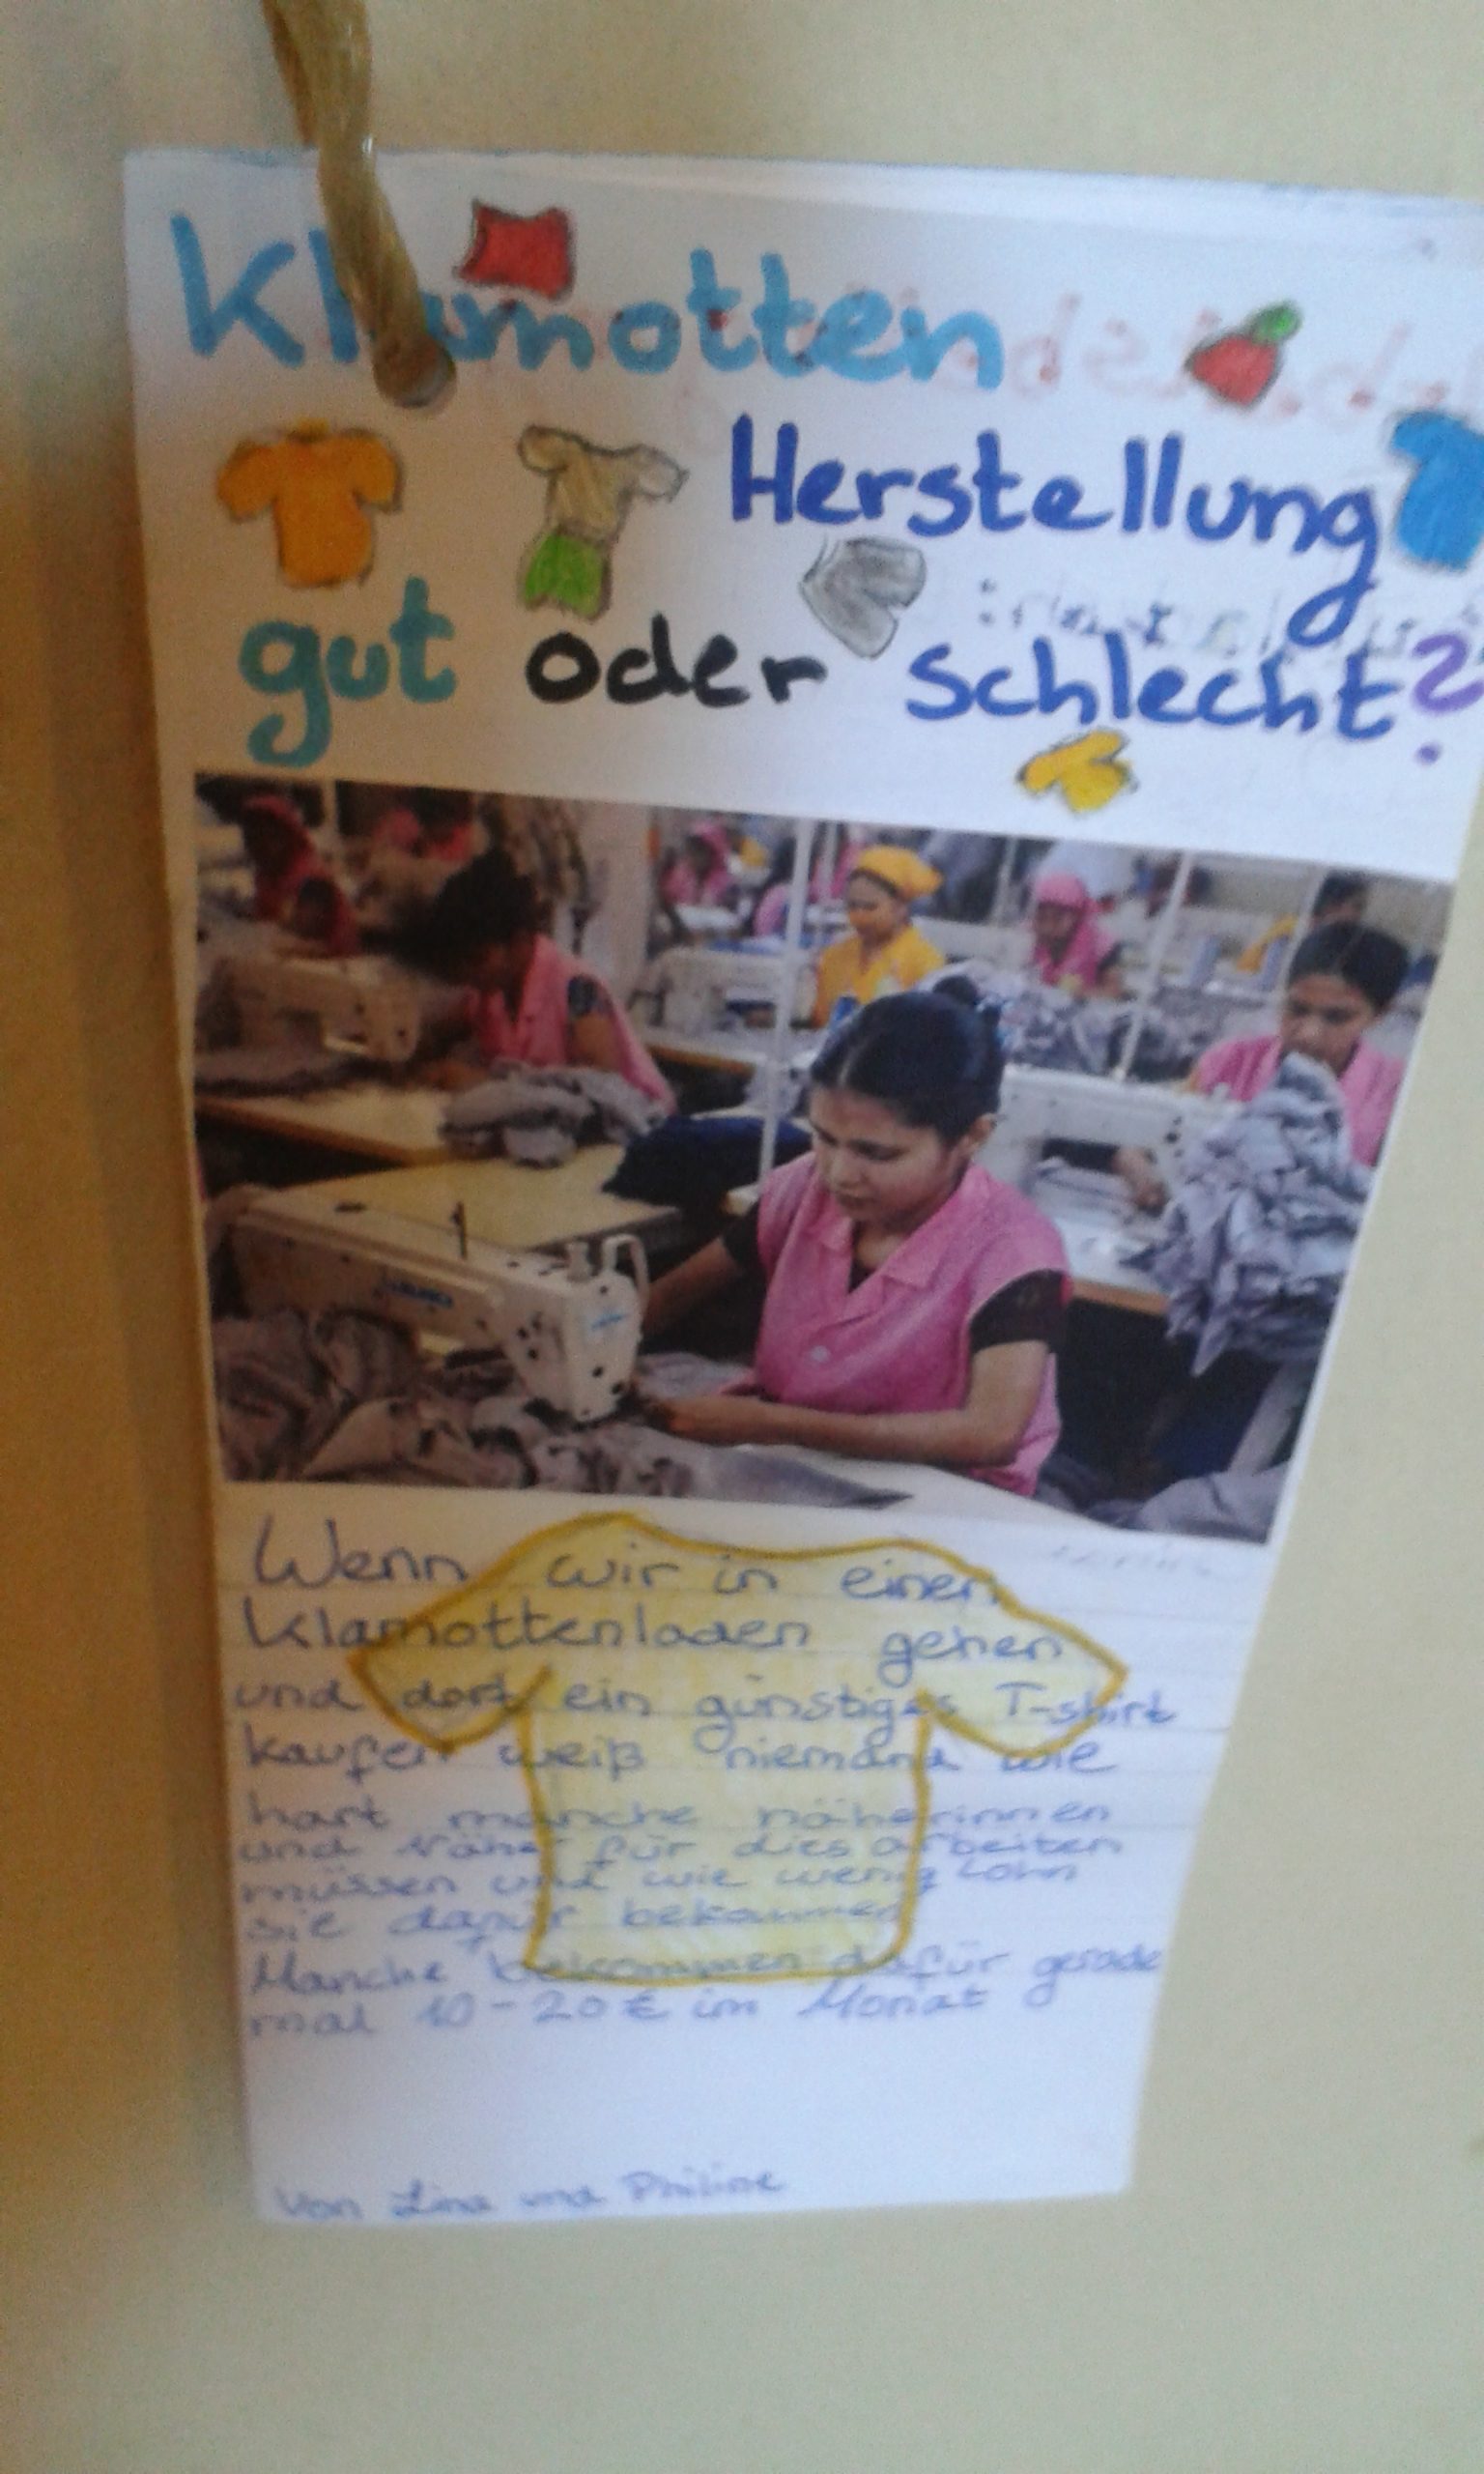 Klamotten
Herstellung
gut oder schlecht?
Wenn wir in einen
Klamottenladen gehen
und dort ein günstiges T-shirt
kaufen weiß niemand wie
hart manche näherinnen
und Näher für dies arbeiten
müssen und wie wenig Lohn
sie dafür bekommen
Manche bekommen dafür gerade
mal 10-20€ im Monat
Von Lina und Philine